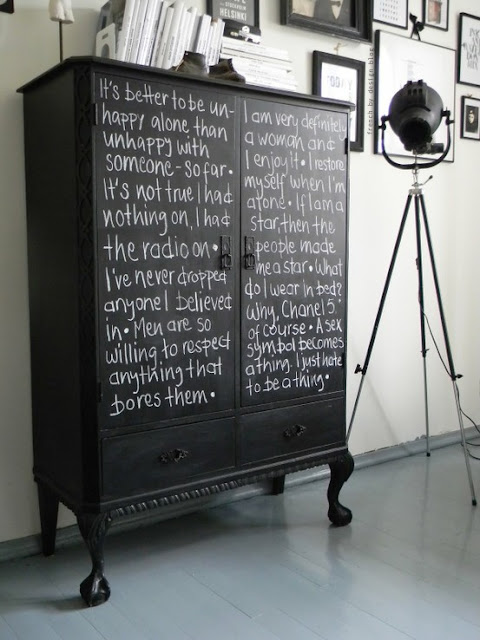 HELSINKI
TODAY
french by design blog
It's better to be un-
happy alone than
unhappy with
someone - so far •
It's not true I had
nothing on, I had
the radio on •
I've never dropped
anyone I believed
in • Men are so
willing to respect
anything that
bores them •
I am very definitely
a woman and
I enjoy it • I restore
myself when I'm
alone • If I am a
star, then the
people made
me a star • What
do I wear in bed?
Why, Chanel 5
of course • A sex
symbol becomes
a thing. I just hate
to be a thing •